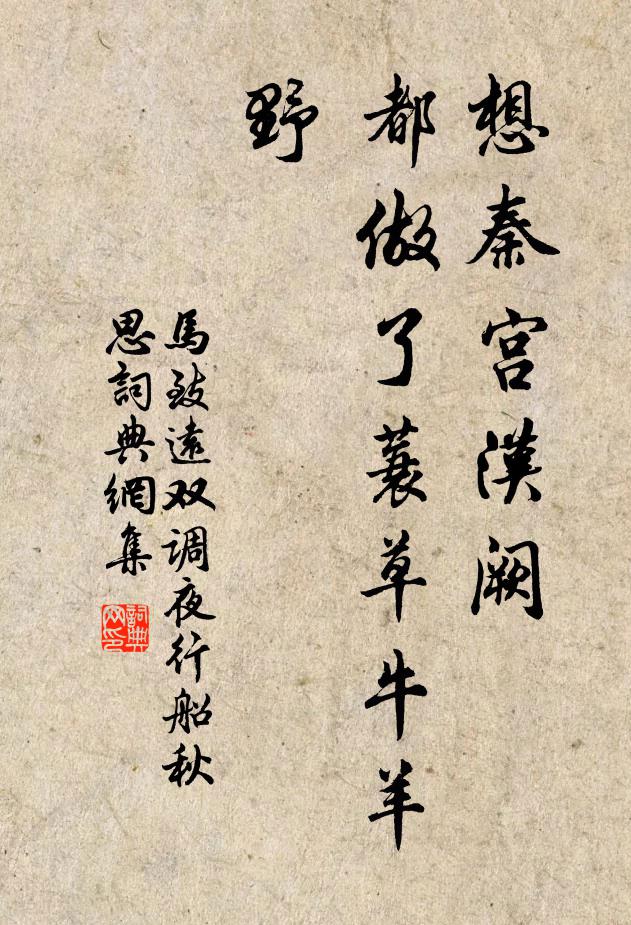 想秦宫漢阙
都做了蓑草牛羊
野
馬致遠双调夜行船秋
思詞典網集
詞典网印